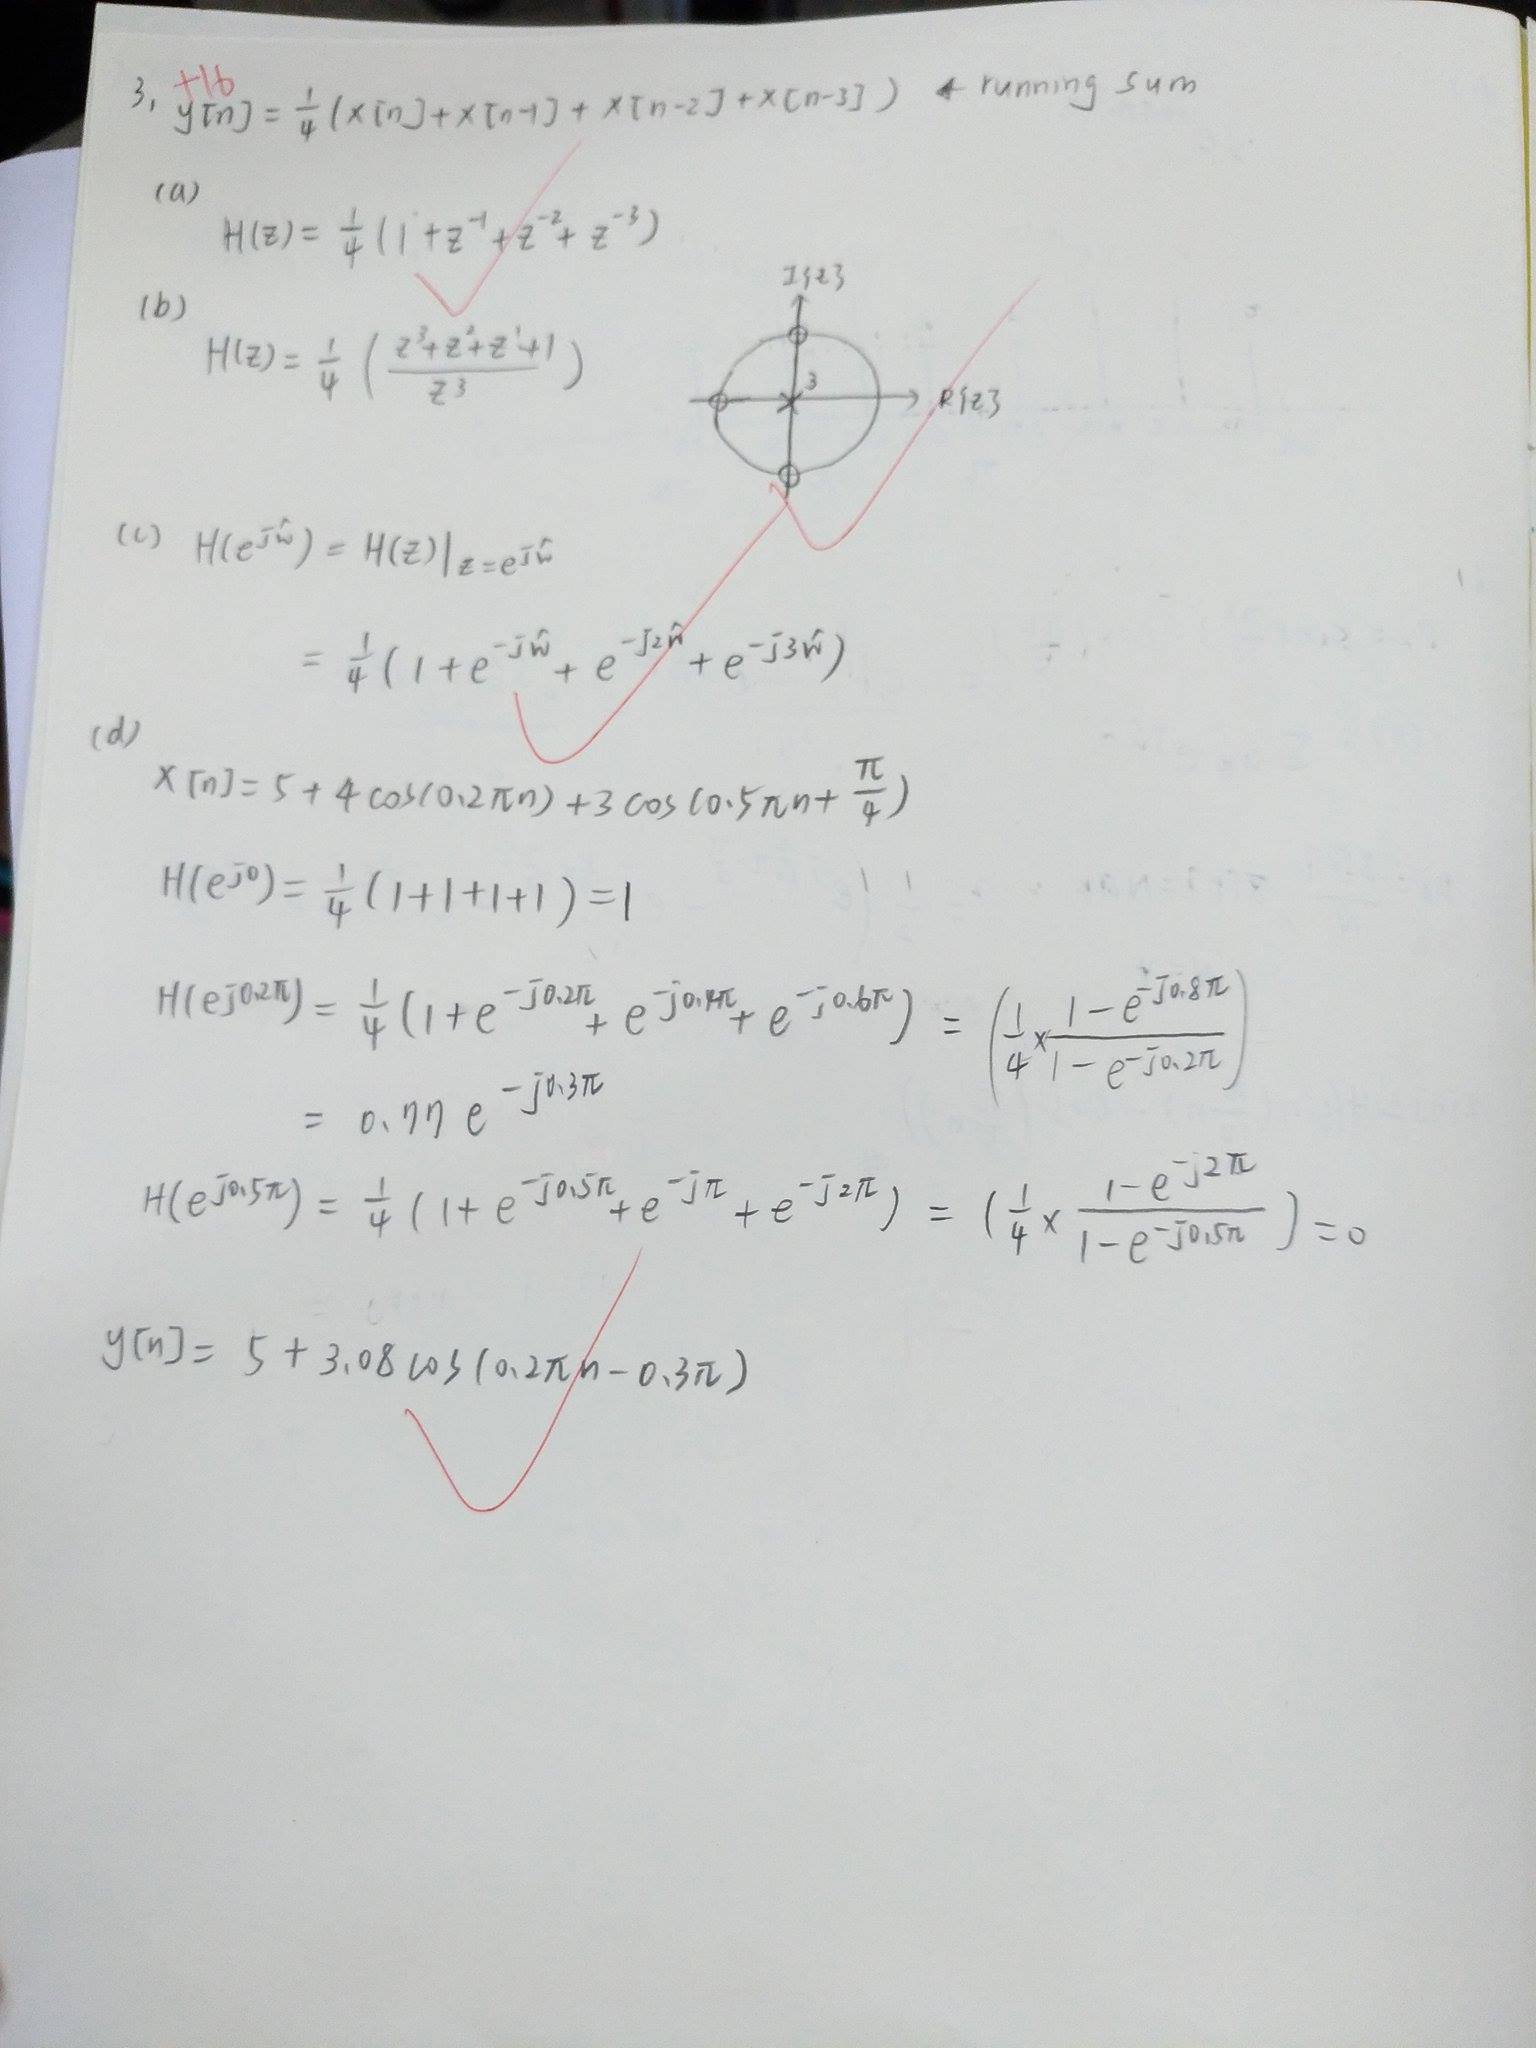 +16
3. y[n] = 1/4 (x[n] + x[n-1] + x[n-2] + x[n-3]) ← running sum
(a)
H(z) = 1/4 (1 + z^-1 + z^-2 + z^-3)
(b)
H(z) = 1/4 ( (z^3 + z^2 + z^1 + 1) / z^3 )
I{z}
3
R{z}
(c) H(e^jŵ) = H(z)|z=e^jŵ
= 1/4 (1 + e^-jŵ + e^-j2ŵ + e^-j3ŵ)
(d)
x[n] = 5 + 4 cos(0.2πn) + 3 cos(0.5πn + π/4)
H(e^j0) = 1/4 (1+1+1+1) = 1
H(e^j0.2π) = 1/4 (1 + e^-j0.2π + e^-j0.4π + e^-j0.6π) = (1/4 × (1 - e^-j0.8π) / (1 - e^-j0.2π))
= 0.77 e^-j0.3π
H(e^j0.5π) = 1/4 (1 + e^-j0.5π + e^-jπ + e^-j2π) = (1/4 × (1 - e^-j2π) / (1 - e^-j0.5π)) = 0
y[n] = 5 + 3.08 cos(0.2πn - 0.3π)